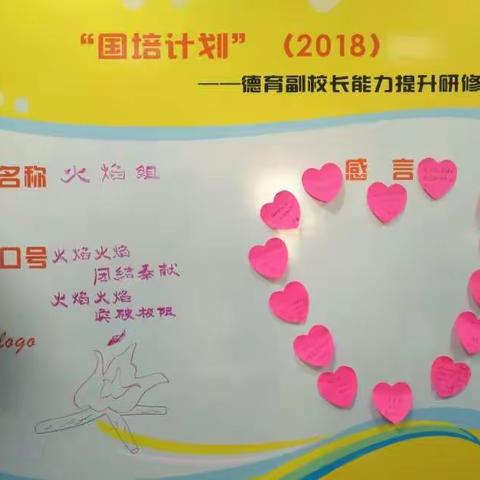 “国培计划”（2018）
——德育副校长能力提升研修
名称 火焰组
感言
口号 火焰火焰
团结奉献
火焰火焰
突破极限
logo